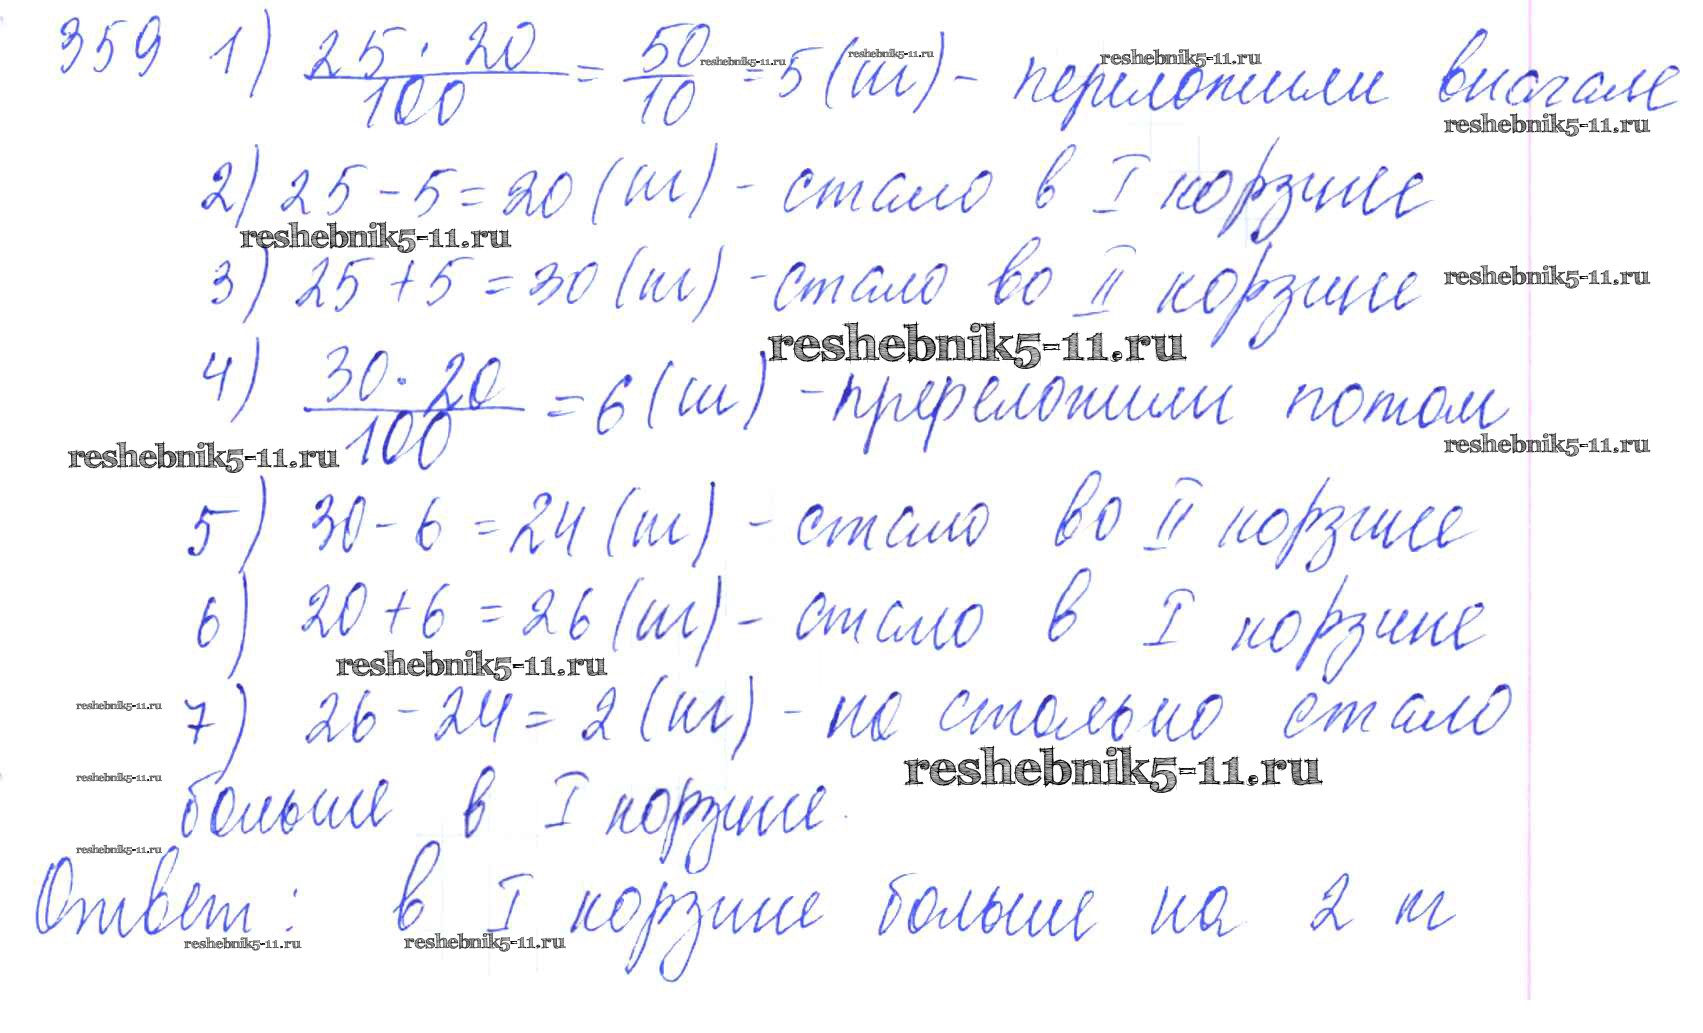 359 1) 25 · 20 / 100 = 50 / 10 = 5 (кг) - переложили вначале
reshebnik5-11.ru reshebnik5-11.ru reshebnik5-11.ru
reshebnik5-11.ru
2) 25 - 5 = 20 (кг) - стало в I корзине
reshebnik5-11.ru
3) 25 + 5 = 30 (кг) - стало во II корзине
reshebnik5-11.ru
reshebnik5-11.ru
4) 30 · 20 / 100 = 6 (кг) - пререложили потом
reshebnik5-11.ru
reshebnik5-11.ru
5) 30 - 6 = 24 (кг) - стало во II корзине
6) 20 + 6 = 26 (кг) - стало в I корзине
reshebnik5-11.ru
7) 26 - 24 = 2 (кг) - на столько стало
reshebnik5-11.ru
reshebnik5-11.ru
reshebnik5-11.ru
больше в I корзине.
reshebnik5-11.ru
Ответ: в I корзине больше на 2 кг
reshebnik5-11.ru reshebnik5-11.ru